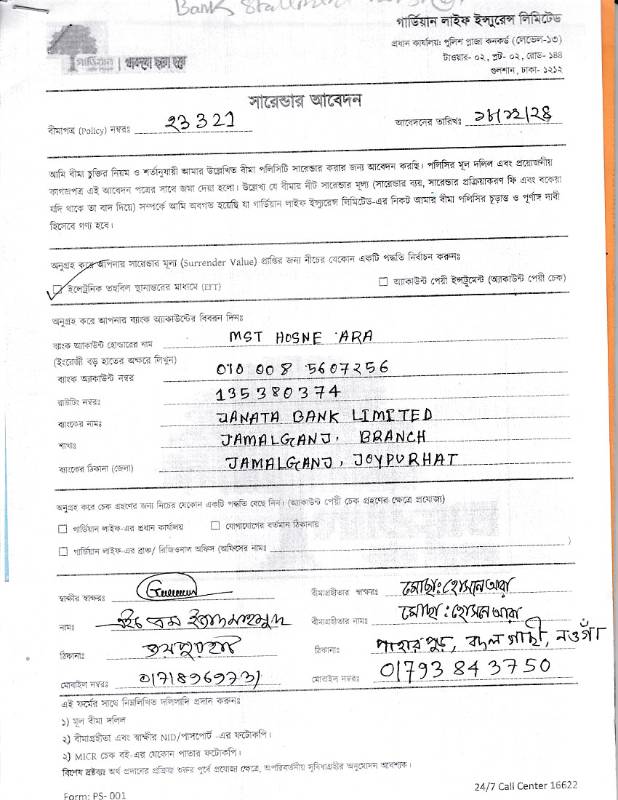 Bank
গার্ডিয়ান লাইফ ইন্স্যুরেন্স লিমিটেড
প্রধান কার্যালয়: পুলিশ প্লাজা কনকর্ড (লেভেল-১৩)
টাওয়ার- ০২, প্লট- ০২, রোড- ১৪৪
গুলশান, ঢাকা- ১২১২
গার্ডিয়ান
সারেন্ডার আবেদন
বীমাপত্র (Policy) নম্বরঃ 23321 আবেদনের তারিখঃ ১৮/১২/২৪
আমি বীমা চুক্তির নিয়ম ও শর্তানুযায়ী আমার উল্লেখিত বীমা পলিসিটি সারেন্ডার করার জন্য আবেদন করছি। পলিসির মূল দলিল এবং প্রয়োজনীয়
কাগজপত্র এই আবেদন পত্রের সাথে জমা দেয়া হলো। উল্লেখ্য যে বীমার নীট সারেন্ডার মূল্য (সারেন্ডার ব্যয়, সারেন্ডার প্রক্রিয়াকরণ ফি এবং বকেয়া
যদি থাকে তা বাদ দিয়ে) সম্পর্কে আমি অবগত হয়েছি যা গার্ডিয়ান লাইফ ইন্স্যুরেন্স লিমিটেড-এর নিকট আমার বীমা পলিসির চূড়ান্ত ও পূর্ণাঙ্গ দাবী
হিসেবে গণ্য হবে।
অনুগ্রহ করে আপনার সারেন্ডার মূল্য (Surrender Value) প্রাপ্তির জন্য নীচের যেকোন একটি পদ্ধতি নির্বাচন করুনঃ
ইলেকট্রনিক তহবিল স্থানান্তরের মাধ্যমে (EFT) অ্যাকাউন্ট পেয়ী ইন্সট্রুমেন্ট (অ্যাকাউন্ট পেয়ী চেক)
অনুগ্রহ করে আপনার ব্যাংক অ্যাকাউন্টের বিবরন দিনঃ
ব্যাংক অ্যাকাউন্ট হোল্ডারের নাম MST HOSNE ARA
(ইংরেজী বড় হাতের অক্ষরে লিখুন)
ব্যাংক অ্যাকাউন্ট নম্বর 010 008 5607256
রাউটিং নম্বরঃ 135380374
ব্যাংকের নামঃ JANATA BANK LIMITED
শাখাঃ JAMALGANJ, BRANCH
ব্যাংকের ঠিকানা (জেলা) JAMALGANJ, JOYPURHAT
অনুগ্রহ করে চেক গ্রহণের জন্য নিচের যেকোন একটি পদ্ধতি বেছে নিন। (অ্যাকাউন্ট পেয়ী চেক গ্রহণের ক্ষেত্রে প্রযোজ্য)
গার্ডিয়ান লাইফ-এর প্রধান কার্যালয় যোগাযোগের বর্তমান ঠিকানায়
গার্ডিয়ান লাইফ-এর ব্রাঞ্চ/ রিজিওনাল অফিস (অফিসের নামঃ )
স্বাক্ষীর স্বাক্ষরঃ বীমাগ্রহীতার স্বাক্ষরঃ মোছাঃ হোসনে আরা
নামঃ বীমাগ্রহীতার নামঃ মোছাঃ হোসনে আরা
ঠিকানাঃ জয়পুরহাট ঠিকানাঃ পাহাড়পুর, বদলগাছী, নওগাঁ
মোবাইল নম্বরঃ 01718969731 মোবাইল নম্বরঃ 01793 843750
এই ফর্মের সাথে নিম্নলিখিত দলিলাদি প্রদান করুনঃ
১) মূল বীমা দলিল
২) বীমাগ্রহীতা এবং স্বাক্ষীর NID/পাসপোর্ট -এর ফটোকপি।
২) MICR চেক বই-এর যেকোন পাতার ফটোকপি।
বিশেষ দ্রষ্টব্যঃ অর্থ প্রদানের প্রক্রিয়া শুরুর পূর্বে প্রযোজ্য ক্ষেত্রে, অপরিবর্তনীয় সুবিধাগ্রহীর অনুমোদন আবশ্যক।
24/7 Call Center 16622
Form: PS- 001